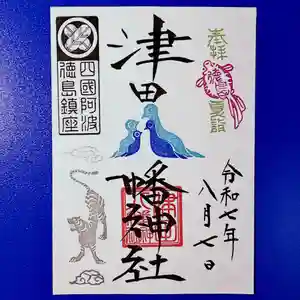 奉拝
徳島
夏詣
津田
幡神社
令和七年
八月七日
四國阿波
徳島鎮座